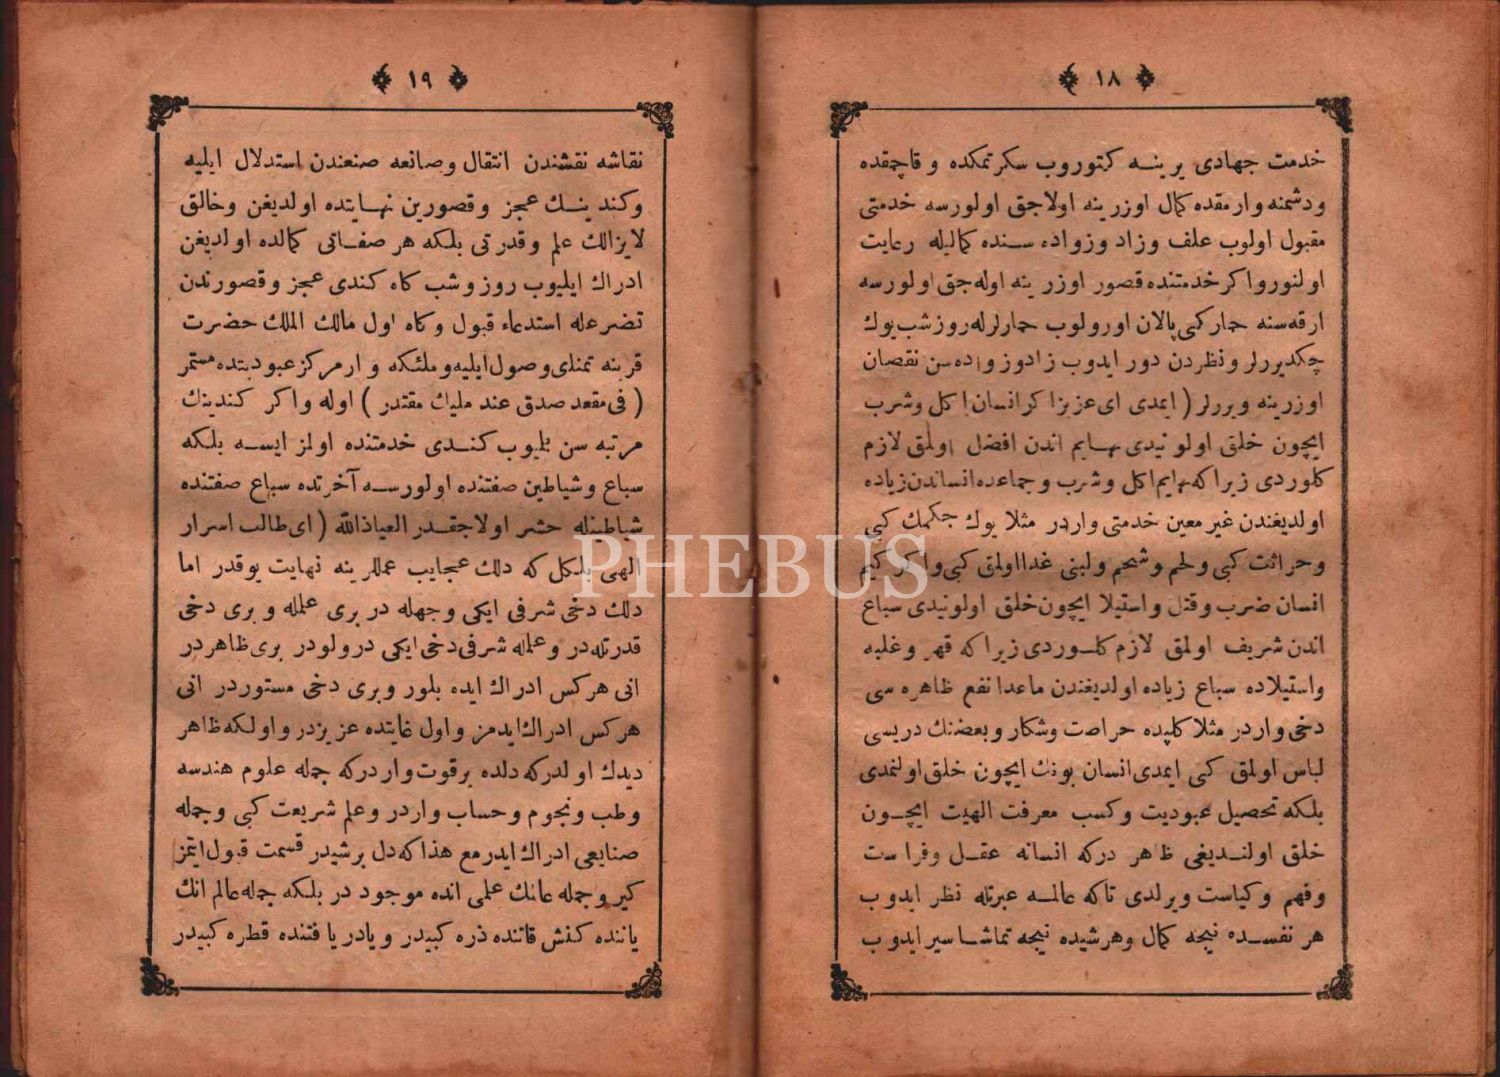 ١٨
خدمت جهادى يرينه كتوروب سكرتمكده و قاچمقده
ودشمنه وارمقده كمال اوزرينه اولاجق اولورسه خدمتى
مقبول اولوب علف وزاد وزواده سنده كماليله رعايت
اولنور واكر خدمتنده قصور اوزرينه اوله جق اولورسه
ارقه سنه حمار كبى پالان اورولوب حمارلرله روز شب يوك
چكديررلر ونظردن دور ايدوب زادوزواده سن نقصان
اوزرينه ويررلر ( ايمدى اى عزيز اكر انسان اكل وشرب
ايچون خلق اولونيدى بهايم اندن افضل اولمق لازم
كلوردى زيرا كه بهايم اكل وشرب وجماعده انساندن زياده
اولديغندن غير معين خدمتى واردر مثلا يوك چكمك كبى
وحراثت كبى ولحم وشحم ولبنى غدا اولمق كبى واكر كيم
انسان ضرب وقتل واستيلا ايچون خلق اولونيدى سباع
اندن شريف اولمق لازم كلوردى زيرا كه قهر وغلبه
واستيلاده سباع زياده اولديغندن ماعدا نفع ظاهره سى
دخى واردر مثلا كلبده حراصت وشكار وبعضنك دريسى
لباس اولمق كبى ايمدى انسان بونك ايچون خلق اولنمدى
بلكه تحصيل عبوديت وكسب معرفت الهيت ايچون
خلق اولنديغى ظاهر دركه انسانه عقل وفراست
وفهم وكياست ويرلدى تاكه عالمه عبرتله نظر ايدوب
هر نفسده نيجه كمال وهرشيده نيجه تماشا سير ايدوب
١٩
نقاشه نقشندن انتقال وصانعه صنعندن استدلال ايليه
وكندينك عجز وقصورين نهايتده اولديغن وخالق
لايزالك علم وقدرتى بلكه هر صفاتى كمالده اولديغن
ادراك ايليوب روز وشب كاه كندى عجز وقصورندن
تضرعله استدعاء قبول وكاه اول مالك الملك حضرت
قربنه تمناى وصول ايليه وملئكه وار مركز عبوديتده مستمر
( فى مقعد صدق عند مليك مقتدر ) اوله واكر كندينك
مرتبه سن بليوب كندى خدمتنده اولمز ايسه بلكه
سباع وشياطين صفتنده اولورسه آخرتده سباع صفتنده
شياطينله حشر اولاجقدر العياذ الله ( اى طالب اسرار
الهى بلكل كه دلك عجايب عمللرينه نهايت يوقدر اما
دلك دخى شرفى ايكى وجهله در برى علمله و برى دخى
قدرتله در و علمله شرفى دخى ايكى درولودر برى ظاهردر
انى هركس ادراك ايده بلور وبرى دخى مستوردر انى
هركس ادراك ايدمز واول غايتده عزيزدر و اولكه ظاهر
ديدك اولدركه دلده برقوت واردركه جمله علوم هندسه
وطب ونجوم وحساب واردر وعلم شريعت كبى وجمله
صنايعى ادراك ايدر مع هذا كه دل برشيدر قسمت قبول ايتمز
كير وجمله عالمك علمى انده موجود در بلكه جمله عالم انك
ياننده كنش قاتنده ذره كبيدر ويادر يا قتنده قطره كبيدر
PHEBUS